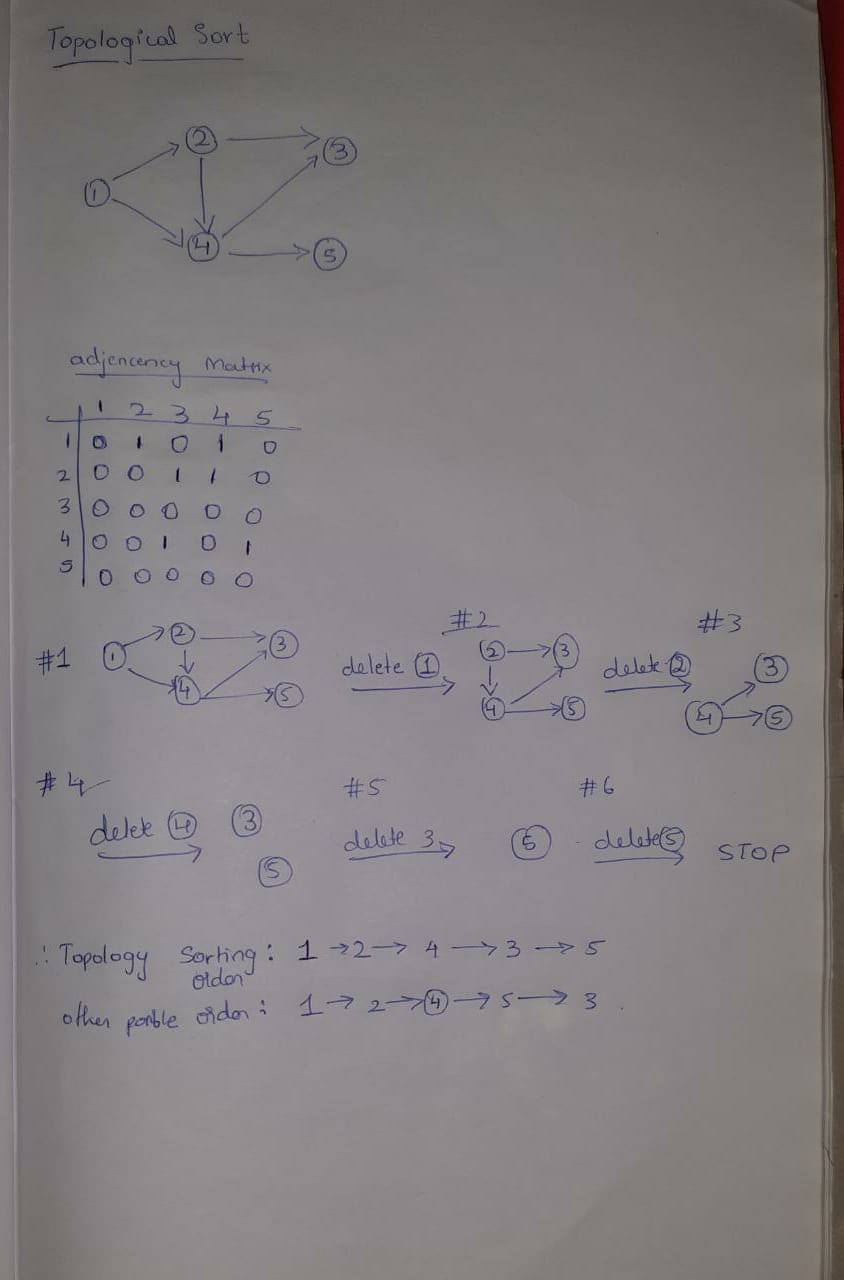 Topological Sort
2
3
1
4
5
adjencency Matrix
1 2 3 4 5
1 0 1 0 1 0
2 0 0 1 1 0
3 0 0 0 0 0
4 0 0 1 0 1
5 0 0 0 0 0
#1 1 2 3 4 5 delete 1 #2 2 3 4 5 delete 2 #3 3 4 5
#4 #5 #6
delete 4 3 5 delete 3 5 delete 5 STOP
∴ Topology Sorting : 1 → 2 → 4 → 3 → 5
order
other possble order : 1 → 2 → 4 → 5 → 3 .